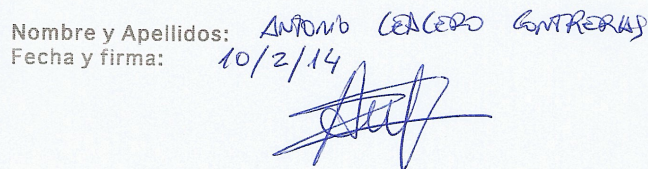 Nombre y Apellidos: ANTONIO CONTRERAS
Fecha y firma: 10/2/14